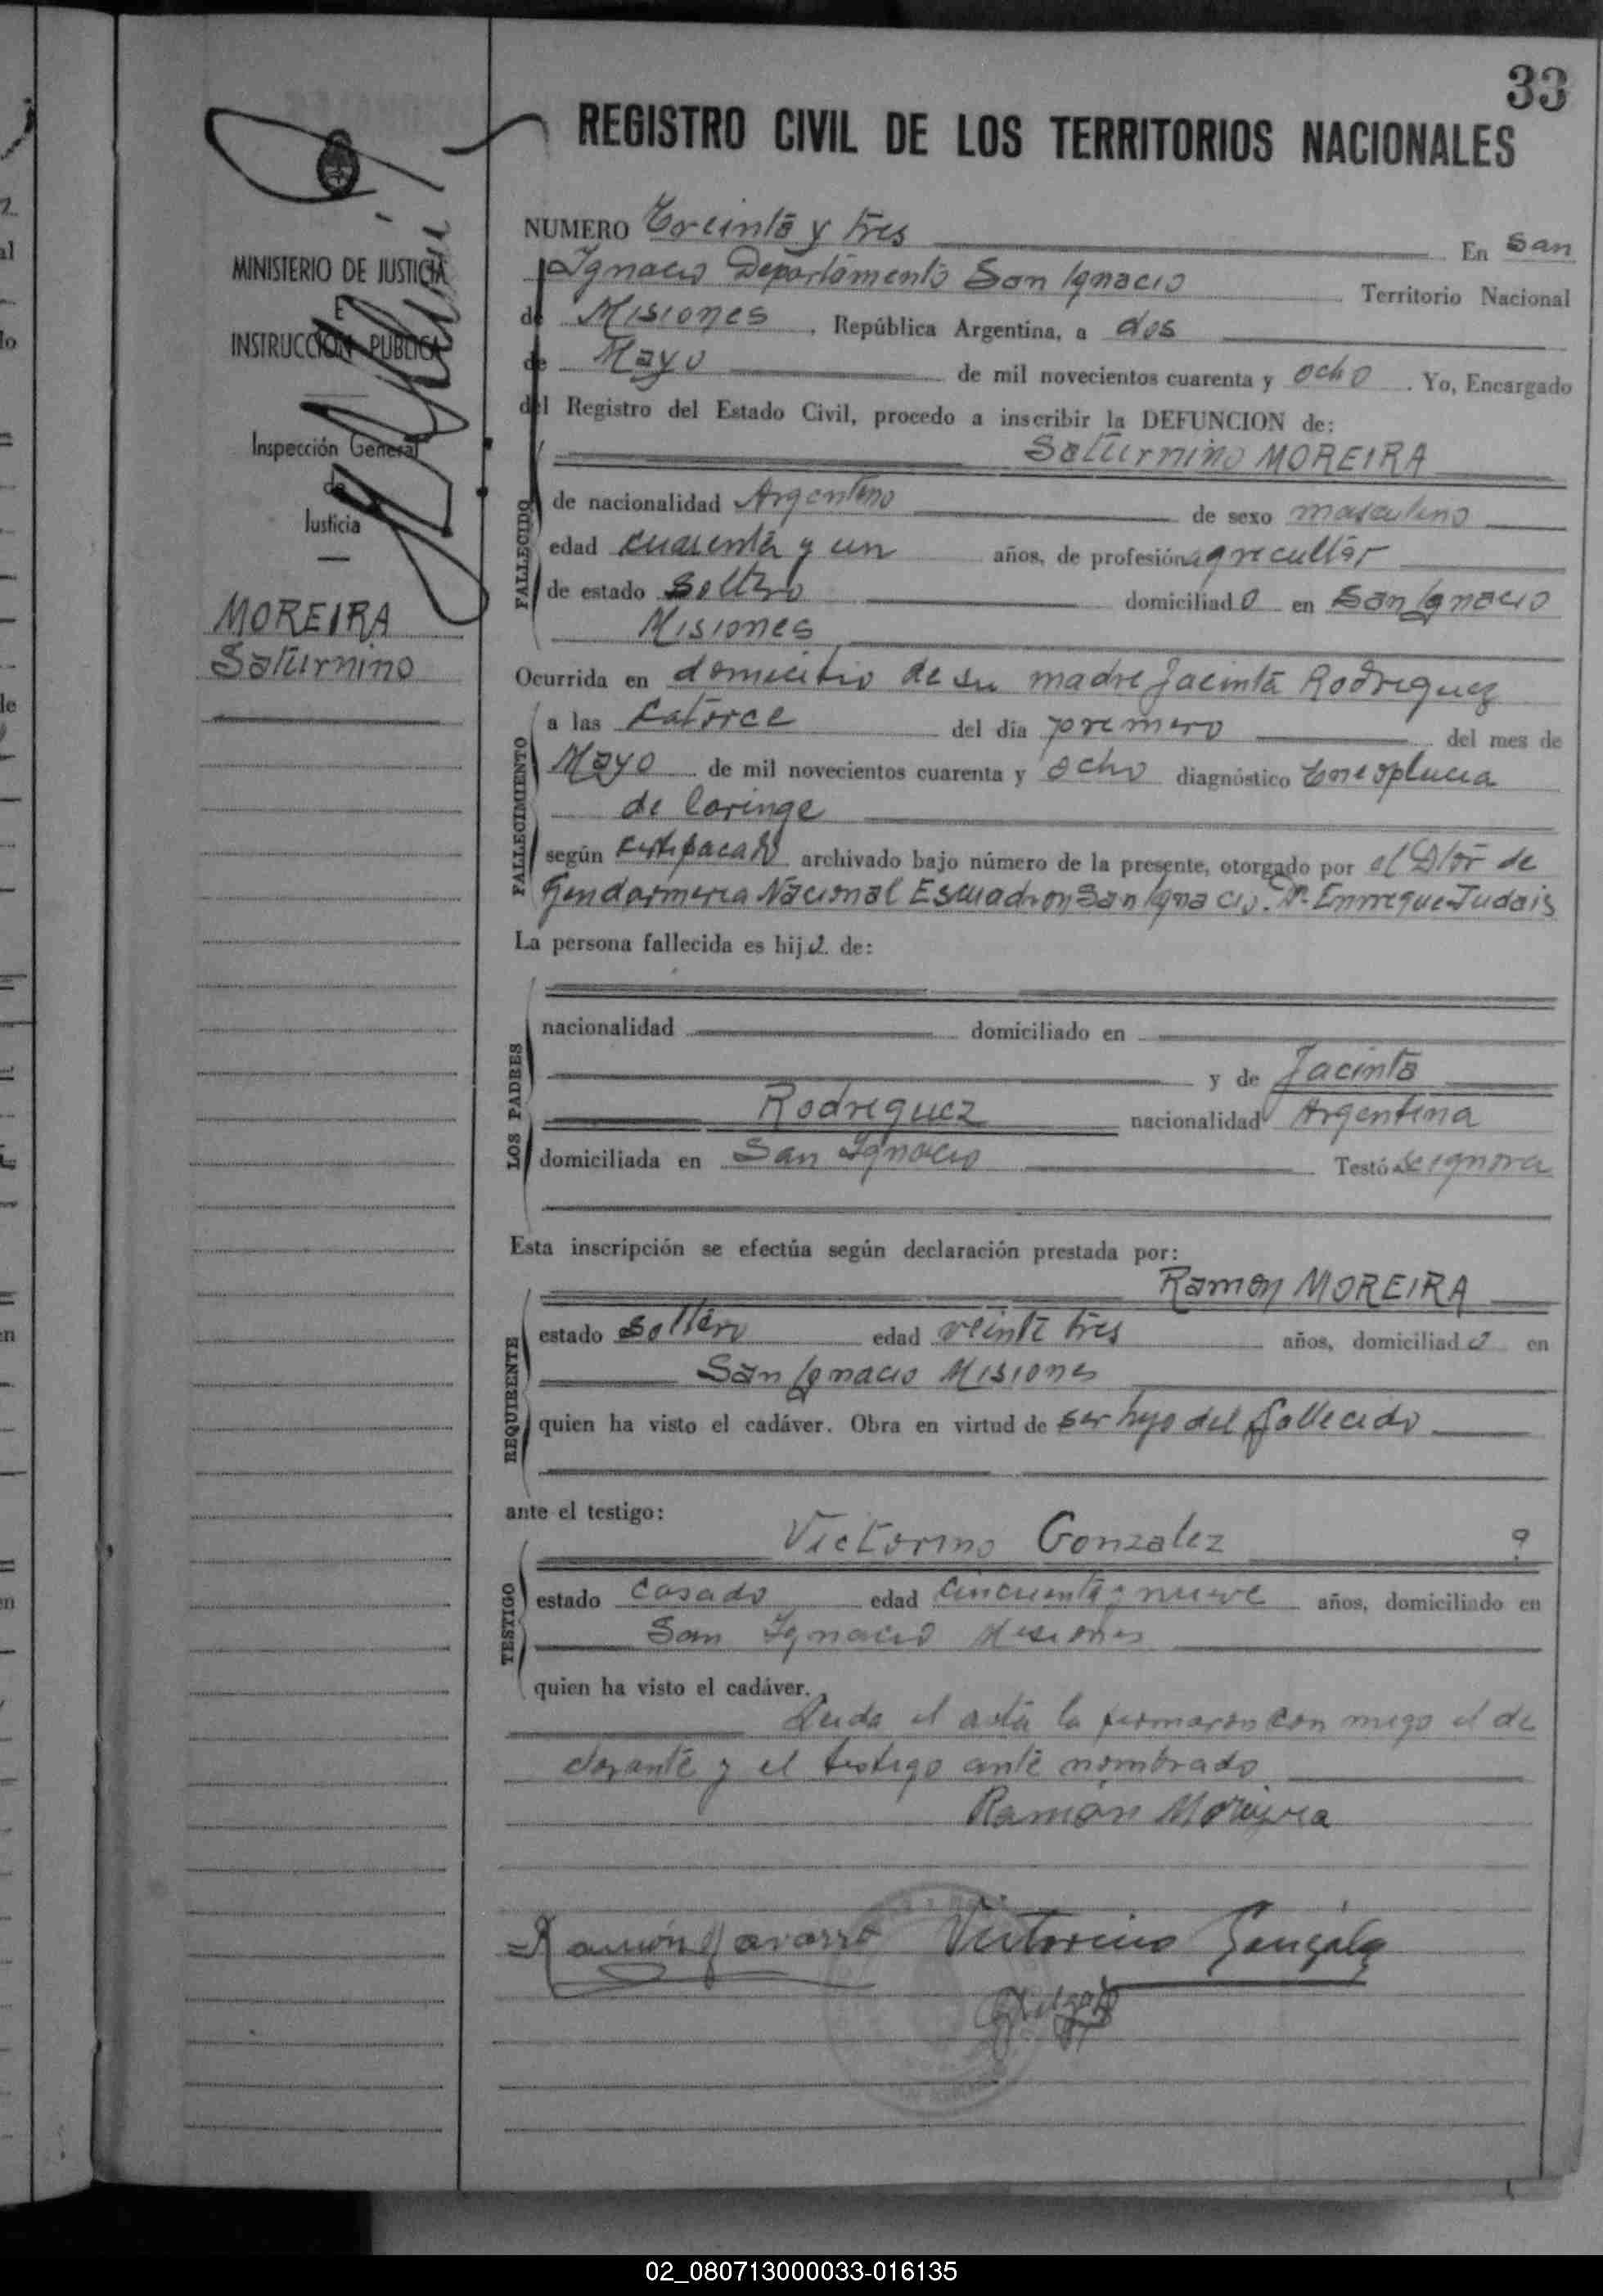 33
REGISTRO CIVIL DE LOS TERRITORIOS NACIONALES
MINISTERIO DE JUSTICIA
E
INSTRUCCION PUBLICA
Inspección General
de
Justicia
MOREIRA
Saturnino
NUMERO Treinta y tres En San
Ignacio Departamento San Ignacio Territorio Nacional
de Misiones, República Argentina, a dos
de Mayo de mil novecientos cuarenta y ocho. Yo, Encargado
del Registro del Estado Civil, procedo a inscribir la DEFUNCION de:
Saturnino MOREIRA
FALLECIDO
de nacionalidad Argentino de sexo masculino
edad cuarenta y un años, de profesión agricultor
de estado Soltero domiciliado en San Ignacio
Misiones
Ocurrida en domicilio de su madre Jacinta Rodriguez
FALLECIMIENTO
a las catorce del día primero del mes de
Mayo de mil novecientos cuarenta y ocho diagnóstico
de laringe
según certificado archivado bajo número de la presente, otorgado por el
Gendarmeria Nacional Escuadron San Ignacio. Dr. Enrrique Judais
La persona fallecida es hijo de:
LOS PADRES
nacionalidad domiciliado en
y de Jacinta
Rodriguez nacionalidad Argentina
domiciliada en San Ignacio Testó se ignora
Esta inscripción se efectúa según declaración prestada por:
Ramon MOREIRA
REQUIRENTE
estado Soltero edad veinte tres años, domiciliado en
San Ignacio Misiones
quien ha visto el cadáver. Obra en virtud de ser hijo del fallecido
ante el testigo:
Victorino Gonzalez
TESTIGO
estado casado edad cincuenta y nueve años, domiciliado en
San Ignacio Misiones
quien ha visto el cadáver.
Leida el acta la firmaron con migo el de
clarante y el testigo ante nombrado
Ramón Moreyra
Ramón Navarro Victorino Gonçalez
02_080713000033-016135